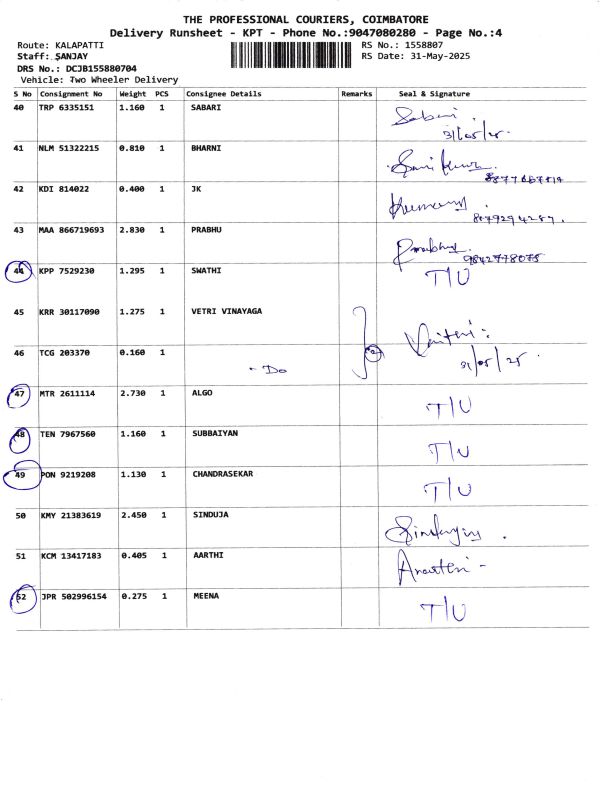 THE PROFESSIONAL COURIERS, COIMBATORE
Delivery Runsheet - KPT - Phone No.:9047080280 - Page No.:4
Route: KALAPATTI RS No.: 1558807
Staff: SANJAY RS Date: 31-May-2025
DRS No.: DCJB155880704
Vehicle: Two Wheeler Delivery
S No Consignment No Weight PCS Consignee Details Remarks Seal & Signature
40 TRP 6335151 1.160 1 SABARI Sabari
31/05/25.
41 NLM 51322215 0.810 1 BHARNI
42 KDI 814022 0.400 1 JK
8079294287.
43 MAA 866719693 2.830 1 PRABHU Prabhu
9842778075
44 KPP 7529230 1.295 1 SWATHI T/U
45 KRR 30117090 1.275 1 VETRI VINAYAGA
46 TCG 203370 0.160 1 - Do 2
31/05/25.
47 MTR 2611114 2.730 1 ALGO T/U
48 TEN 7967560 1.160 1 SUBBAIYAN T/U
49 PON 9219208 1.130 1 CHANDRASEKAR T/U
50 KMY 21383619 2.450 1 SINDUJA
51 KCM 13417183 0.405 1 AARTHI
52 JPR 502996154 0.275 1 MEENA T/U